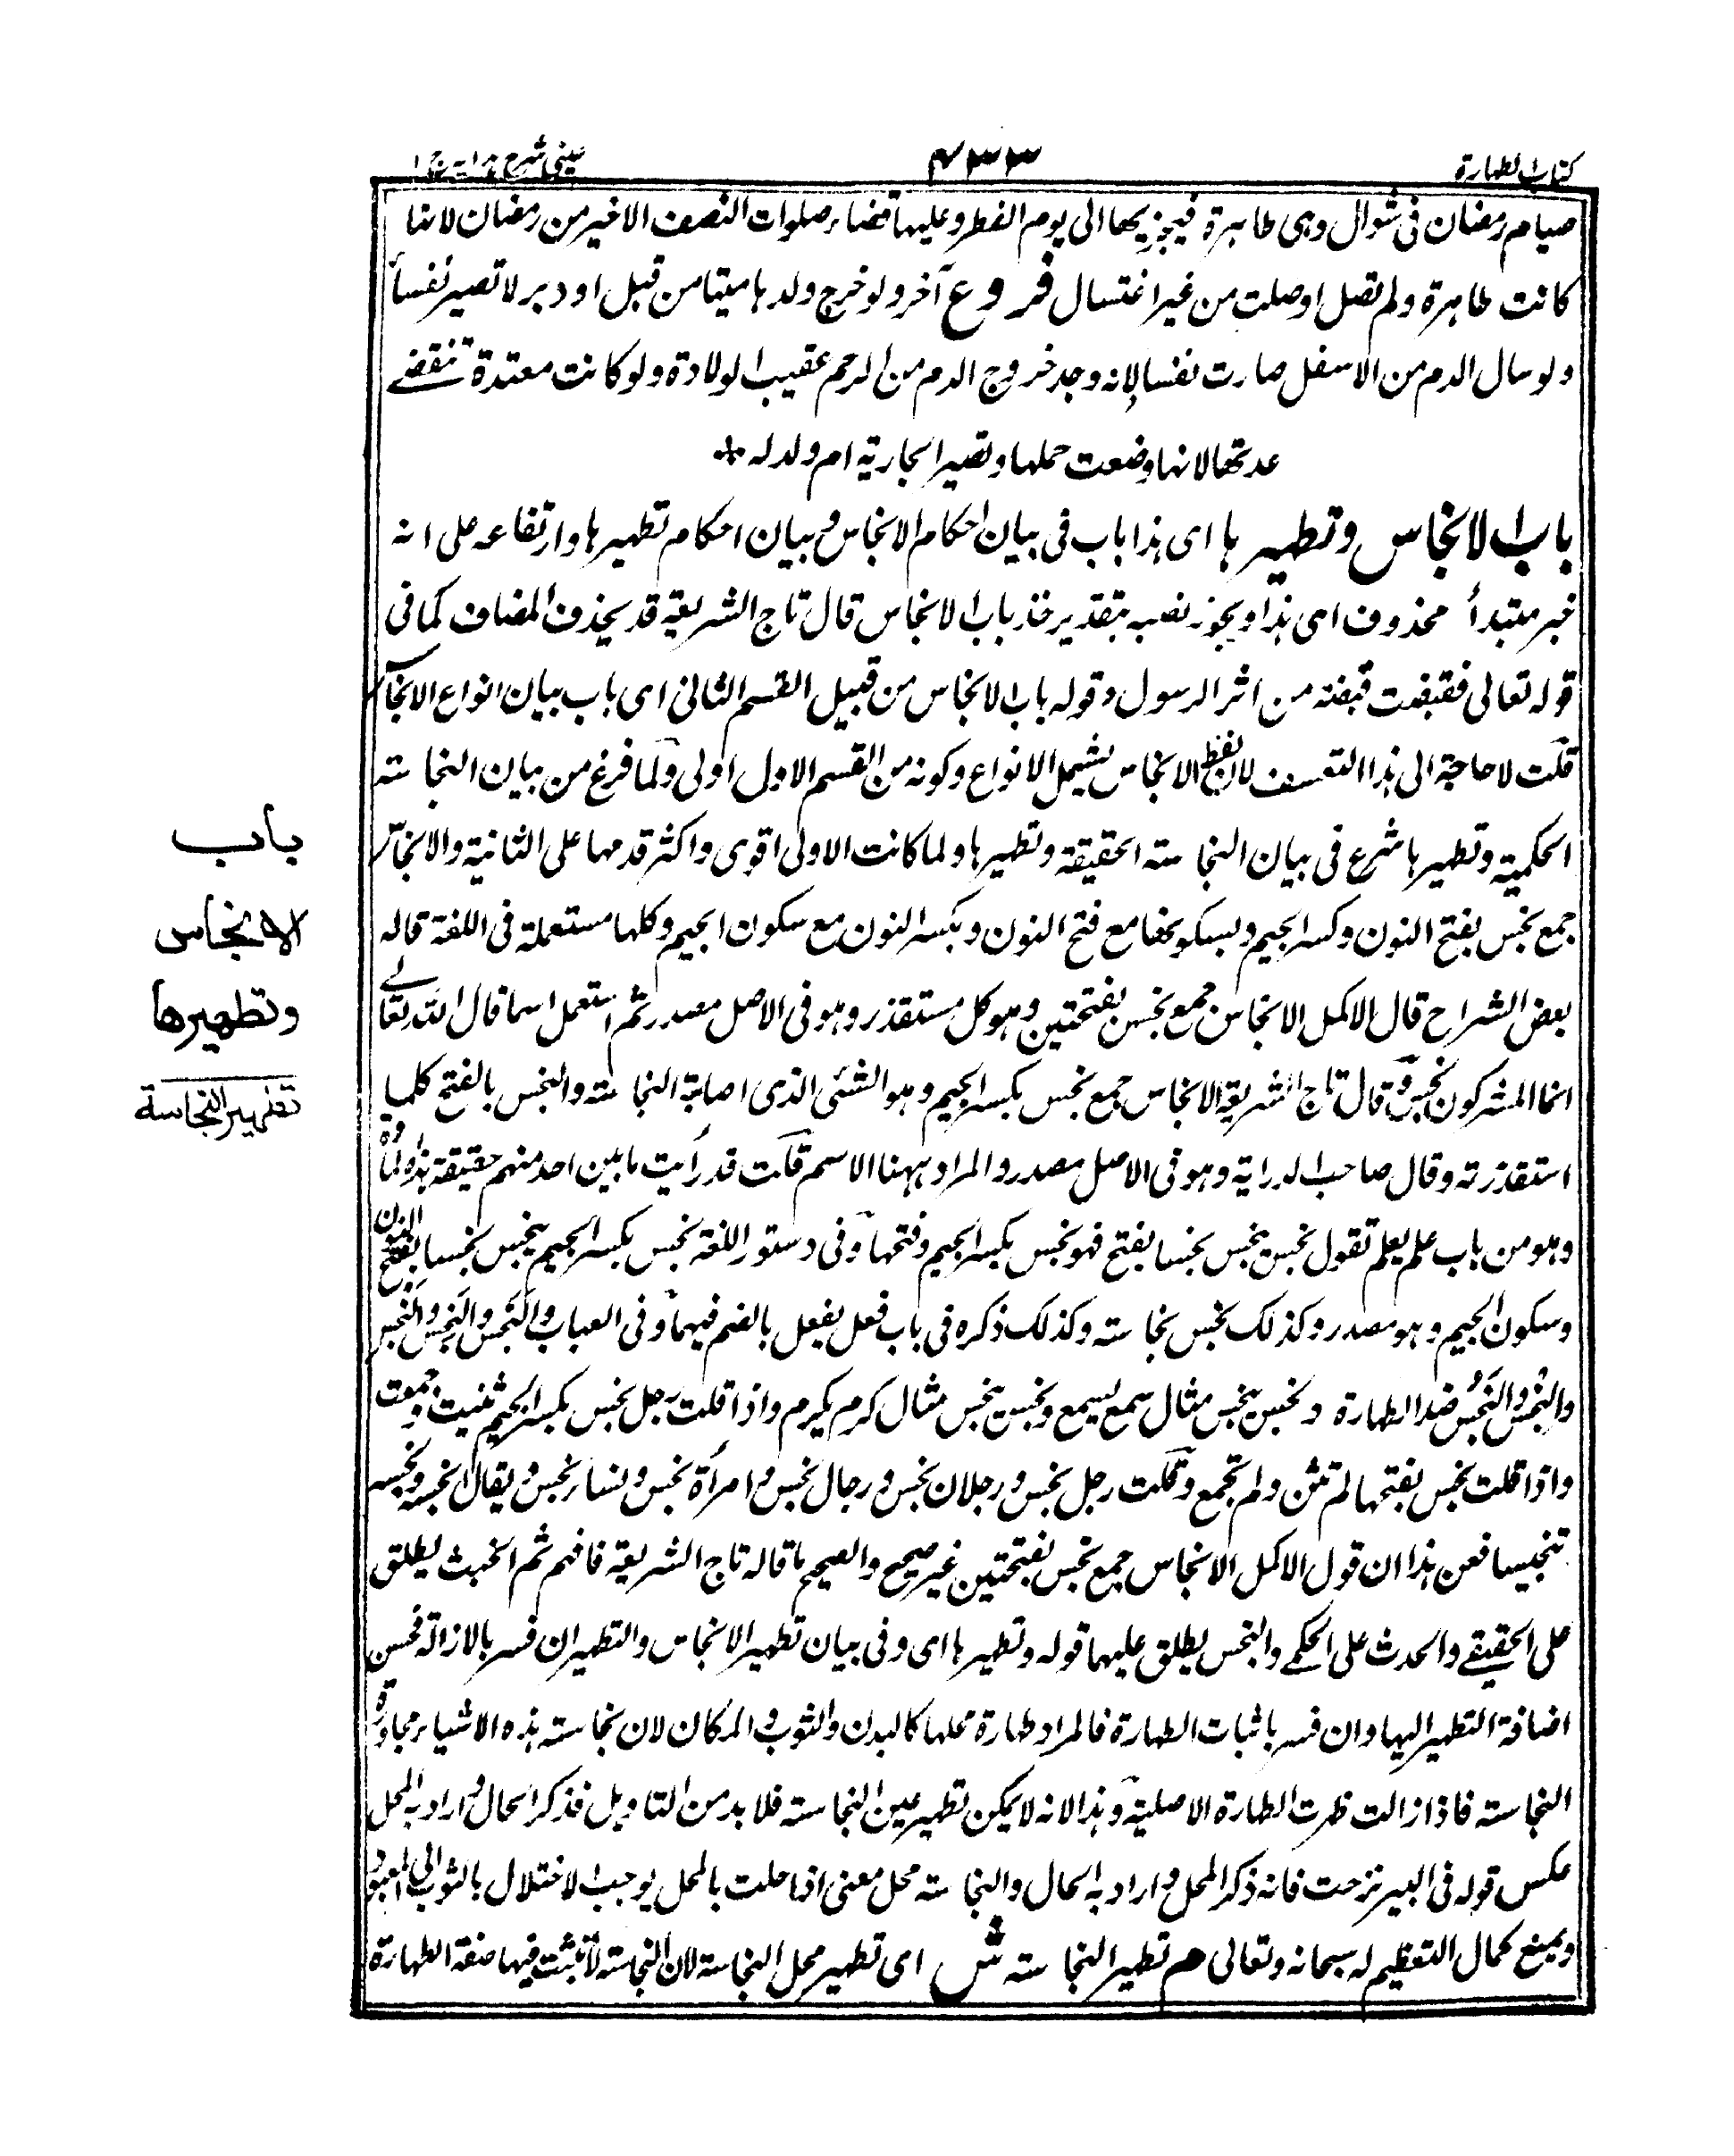 كتاب الطهارة
٤٣٣
عيني شرح هداية ج ١
صيام رمضان في شوال وهي طاهرة فيجزيها الى يوم الفطر وعليها قضاء صلوات النصف الاخير من رمضان لانها
كانت طاهرة ولم تصل او صلت من غير اغتسال فروع آخر ولو خرج ولدها ميتا من قبل او دبر لا تصير نفسأ
ولو سال الدم من الاسفل صارت نفسا لانه وجد خروج الدم من الرحم عقيب الولادة ولو كانت معتدة تنقضي
عدتها لانها وضعت حملها وتصير الجارية ام ولد له
باب الانجاس وتطهيرها اى هذا باب فى بيان احكام الانجاس وبيان احكام تطهيرها وارتفاعه على انه
خبر مبتدأ محذوف اى هذا ويجوز نصبه بتقدير خذ باب الانجاس قال تاج الشريعة قد يحذف المضاف كما فى
قوله تعالى فقبضت قبضة من اثر الرسول وقوله باب الانجاس من قبيل القسم الثانى اى باب بيان انواع الانجاس
قلت لا حاجة الى هذا التعسف لان لفظ الانجاس يشمل الانواع وكونه من القسم الاول اولى ولما فرغ من بيان النجاسة
الحكمية وتطهيرها شرع فى بيان النجاسة الحقيقة وتطهيرها ولما كانت الاولى اقوى واكثر قدمها على الثانية والانجاس
جمع نجس بفتح النون وكسر الجيم وبسكونها مع فتح النون وبكسر النون مع سكون الجيم وكلها مستعملة فى اللغة قاله
بعض الشراح قال الاكمل الانجاس جمع نجس بفتحتين وهو كل مستقذر وهو فى الاصل مصدر ثم استعمل اسما قال الله تعالى
انما المشركون نجس وقال تاج الشريعة الانجاس جمع نجس بكسر الجيم وهو الشئى الذى اصابة النجاسة والنجس بالفتح كلما
استقذرته وقال صاحب الدراية وهو فى الاصل مصدر والمراد ههنا الاسم قلت قد رأيت ما بين احد منهم حقيقة هذه المادة
وهو من باب علم يعلم تقول نجس ينجس نجسا بفتح فهو نجس بكسر الجيم وفتحها وفى دستور اللغة نجس بكسر الجيم ينجس نجسا بفتح النون
وسكون الجيم وهو مصدر وكذلك نجس نجاسة وكذلك ذكره فى باب فعل يفعل بالضم فيهما وفى العباب والنجس والنجس والنجس
والنجس والنجس ضد الطهارة ونجس ينجس مثال سمع يسمع ونجس ينجس مثال كرم يكرم واذا قلت رجل نجس بكسر الجيم ثنيت وجمعت
واذا قلت نجس بفتحها لم تثن ولم تجمع وقلت رجل نجس ورجلان نجس ورجال نجس وامرأة نجس ونساء نجس ويقال انجسه ونجسه
تنجيسا فعن هذا ان قول الاكمل الانجاس جمع نجس بفتحتين غير صحيح والصحيح ما قاله تاج الشريعة فافهم ثم الخبث يطلق
على الحقيقے والحدث على الحكمے والنجس يطلق عليهما قوله وتطهيرها اى وفى بيان تطهير الانجاس والتطهير ان فسر بالازالة فحسن
اضافة التطهير اليها وان فسر باثبات الطهارة فالمراد طهارة محلها كالبدن والثوب والمكان لان نجاسة هذه الاشياء مجاورة
النجاسة فاذا زالت ظهرت الطهارة الاصلية وهذا لانه لا يمكن تطهير عين النجاسة فلا بد من التاويل فذكر الحال واراد به المحل
عكس قوله فى البير نزحت فانه ذكر المحل واراد به الحال والنجاسة محل معنى اذا حلت بالمحل يوجب الاختلال بالثوب الى المعبود
ويمنع كمال التعظيم له سبحانه وتعالى م تطهير النجاسة ش اى تطهير محل النجاسة لان النجاسة لا تثبت فيها صفة الطهارة
باب
الانجاس
وتطهيرها
تطهير النجاسة